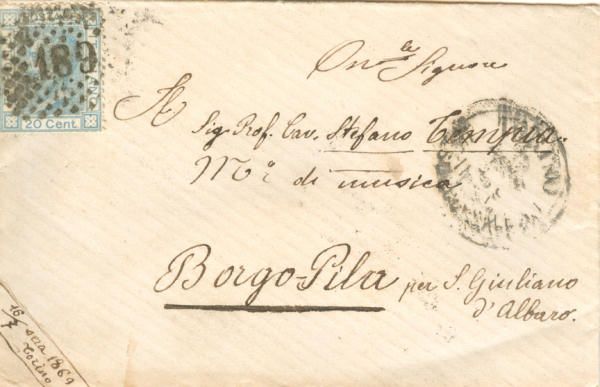 189
20 Cent.
On.le Signore
A
Sig. Prof. Cav. Stefano Tempia.
M.o di musica
Borgo-Pila per S. Giuliano
d'Albaro.
16
7 sera 1869
Torino